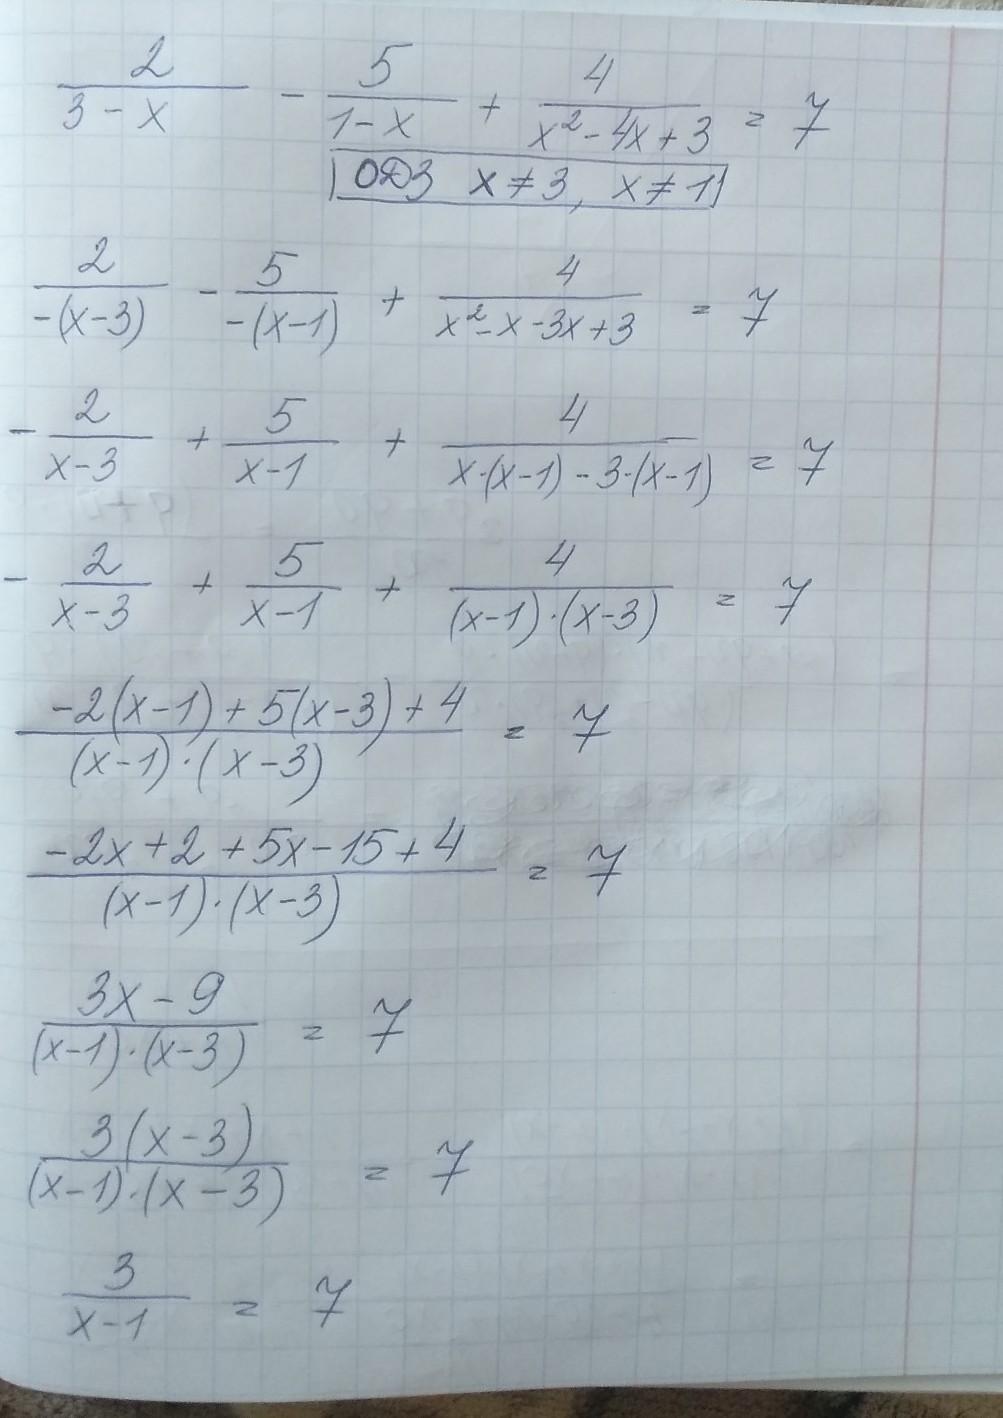 2/(3 - x) - 5/(1 - x) + 4/(x² - 4x + 3) = 7
ОДЗ x ≠ 3, x ≠ 1
2/(-(x-3)) - 5/(-(x-1)) + 4/(x² - x - 3x + 3) = 7
- 2/(x-3) + 5/(x-1) + 4/(x·(x-1) - 3·(x-1)) = 7
- 2/(x-3) + 5/(x-1) + 4/((x-1)·(x-3)) = 7
(-2(x-1) + 5(x-3) + 4)/((x-1)·(x-3)) = 7
(-2x + 2 + 5x - 15 + 4)/((x-1)·(x-3)) = 7
(3x - 9)/((x-1)·(x-3)) = 7
3(x-3)/((x-1)·(x-3)) = 7
3/(x-1) = 7